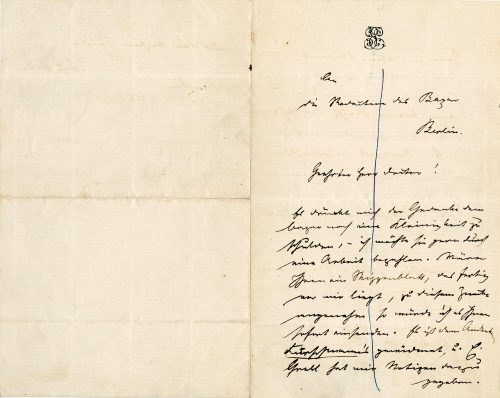 An
die Redaction des Bazar
Berlin.
Geehrter Herr Doctor!
Es drückt mich der Gedanke dem
Bazar noch eine Kleinigkeit zu
schulden, – ich möchte sie gern durch
eine Arbeit bezahlen. Wäre
Ihnen ein Skizzenblatt, das fertig
vor mir liegt, zu diesem Zwecke
angenehm so würde ich es Ihnen
sofort einsenden. Es ist dem Andenken
gewidmet, u.
hat mir Notizen dazu
gegeben.